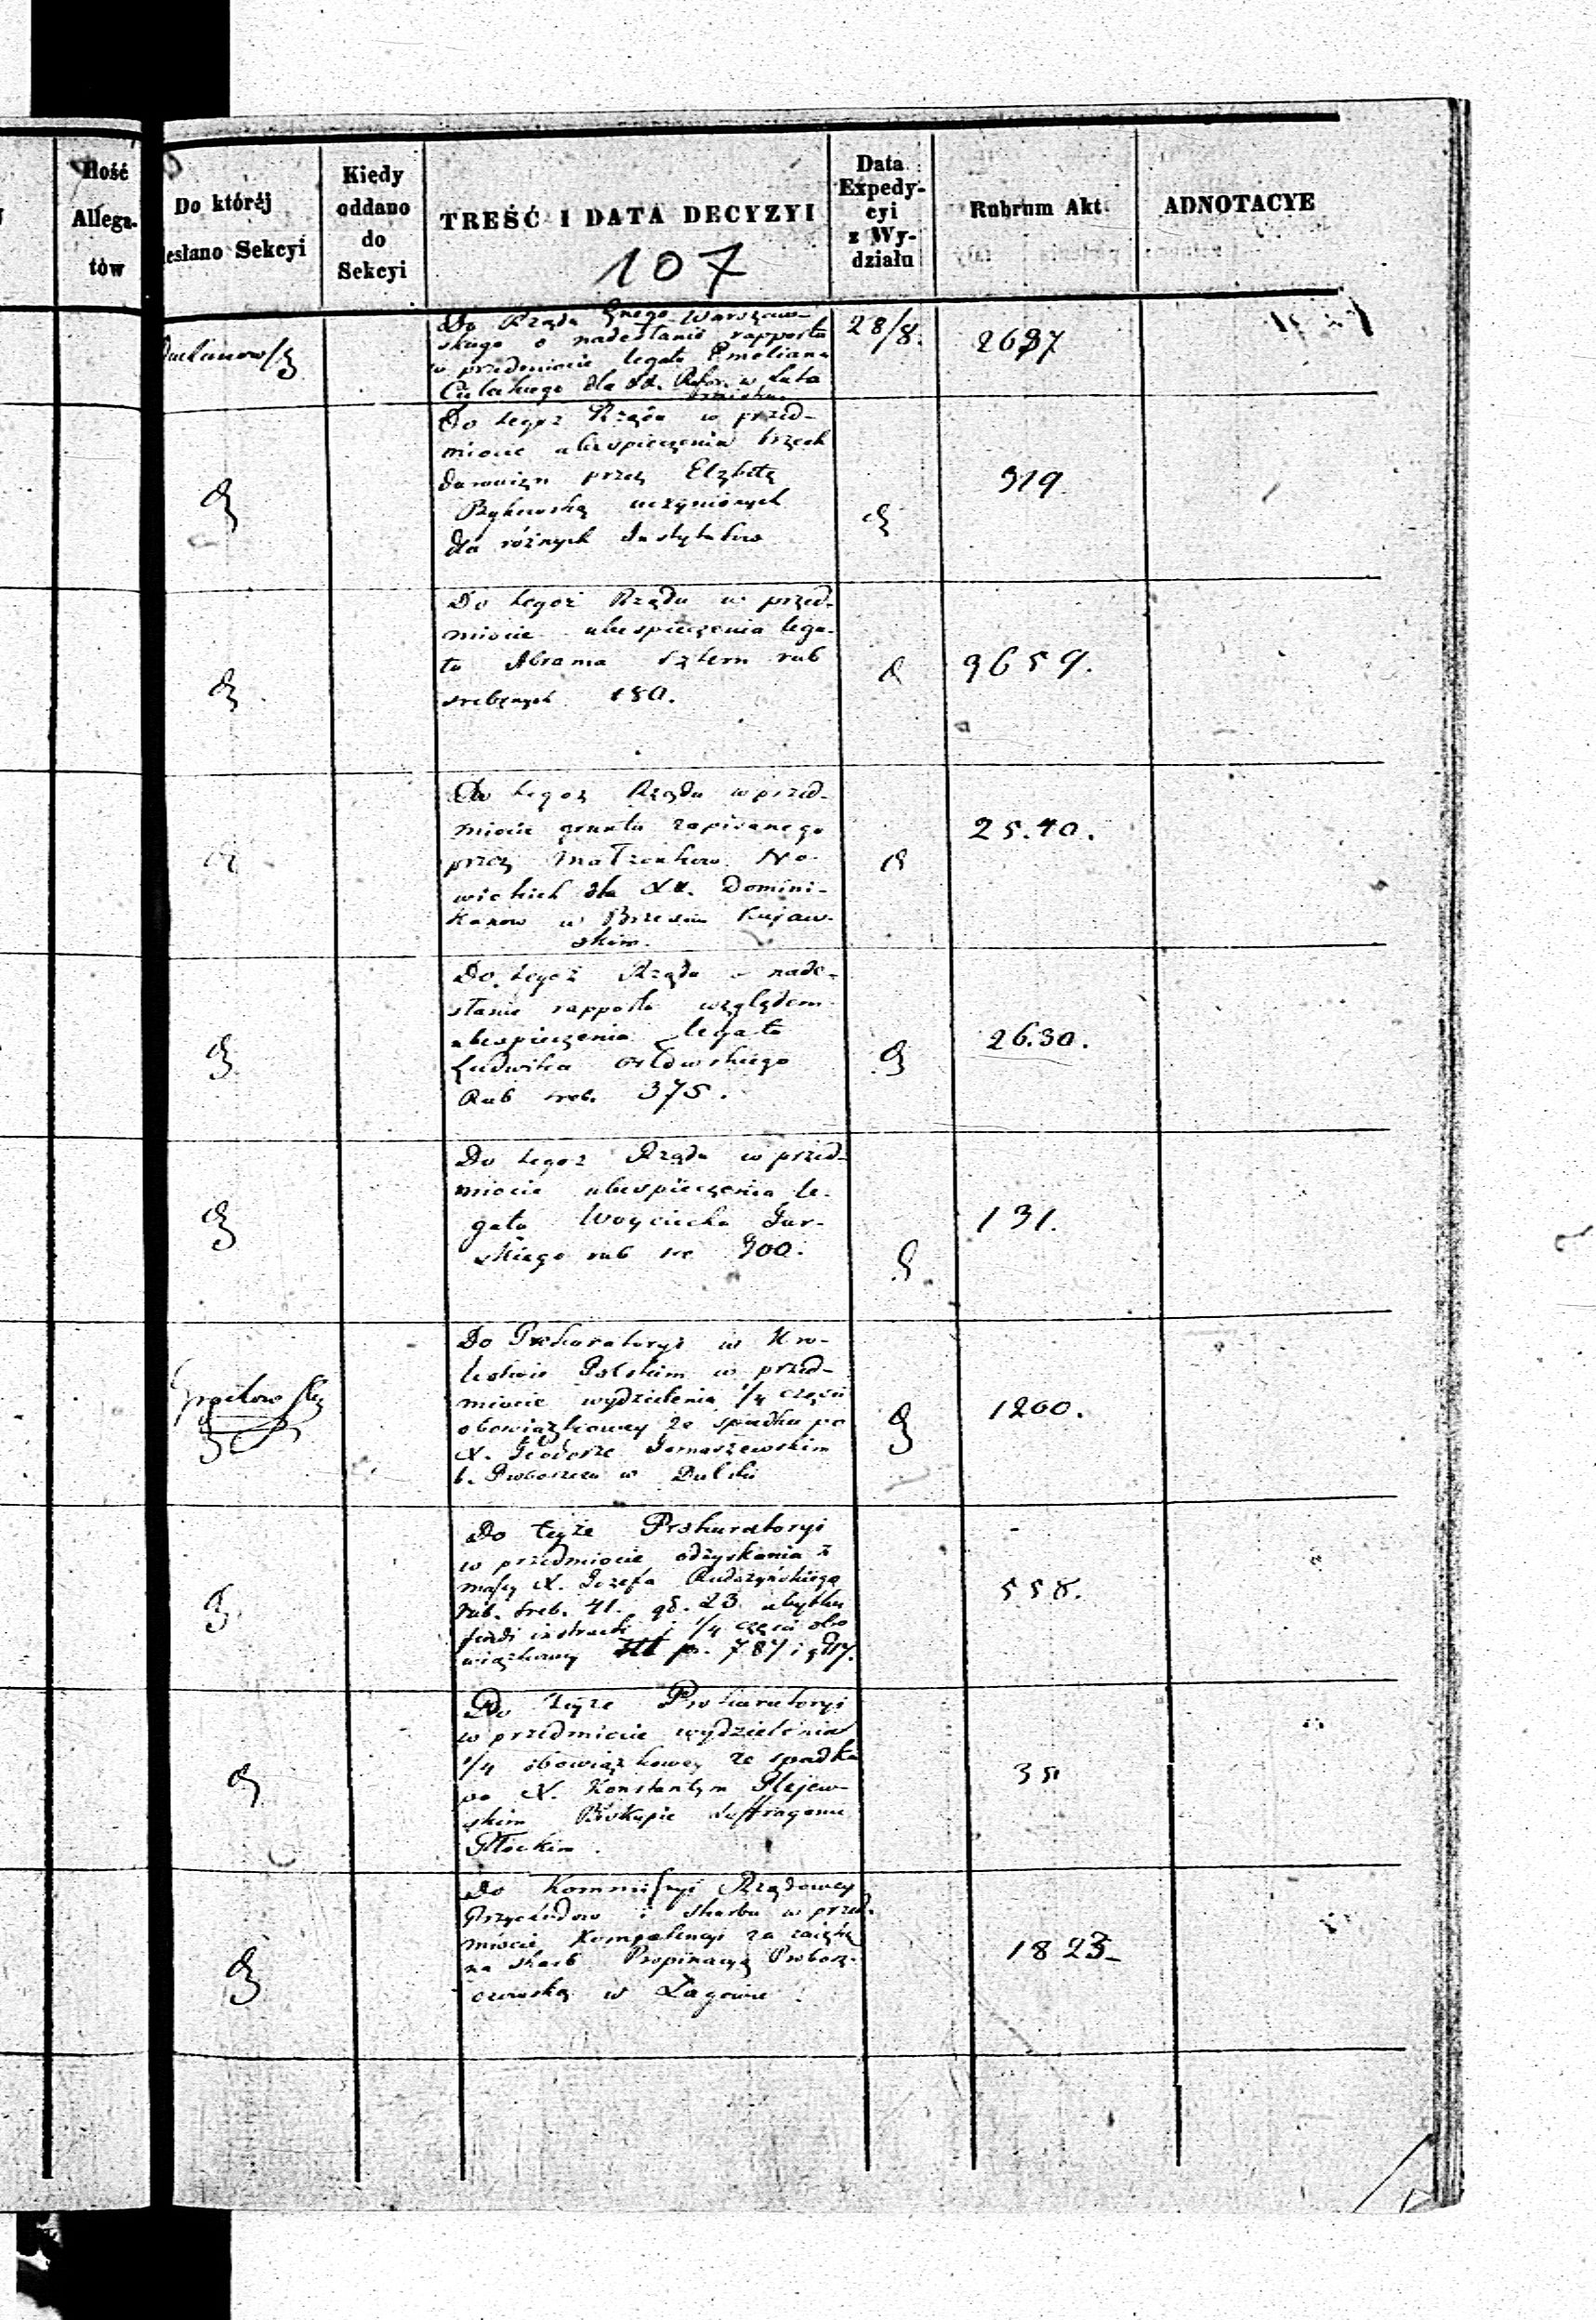 Ilość
Allega-
tów
Do któréj
esłano Sekcyi
Kiedy
oddano
do
Sekcyi
TREŚĆ I DATA DECYZYI
107
Data
Expedy-
cyi
z Wy-
działu
Rubrum Akt.
ADNOTACYE
Do Rządu Gnego Warszaw-
skiego o nadesłanie rapportu
w przedmiocie legatu Emeliana
dla XX. Refor. w
28/8.
2637
Do tegoż Rządu w przed-
miocie ubespieczenia trzech
darowizn przez Elzbietę
uczynionych
dla różnych Instytutów
319.
Do tegoż Rządu w przed-
miocie ubespieczenia lega-
tu Abrama Sztern rub
srebrnych 150.
3659.
Do tegoż Rządu w przed-
miocie gruntu zapisanego
przez Małżonków No-
wickich dla XX. Domini-
kanow w Brzesciu Kujaw-
skim.
25.40.
Do tegoż Rządu o nade-
słanie rapportu względem
ubespieczenia legatu
Ludwika Orłowskiego
Rub sreb. 375.
26.30.
Do tegoż Rządu w przed-
miocie ubespieczenia le-
gatu Woyciecha Gur-
skiego rub sre 300.
131.
Do Prokuratoryi w Kro-
lestwie Polskim w przed-
miocie wydzielenia 1/4 części
obowiązkowey ze spadku po
X. Teodorze Tomaszewskim
b. Proboszczu w Dulsku
1200.
Do teyże Prokuratoryi
w przedmiocie odzyskania z
massy X. Jozefa Rudzyńskiego
rub. sreb. 41. gr. 23 ubytku
fundi instructi i 1/4 części obo
wiązkowey złt p. 787 i
558.
Do teyże Prokuratoryi
w przedmiocie wydzielenia
1/4 obowiązkowey ze spadku
po X. Konstantym Plejew-
skim Biskupie Suffraganie
Płockim.
Do Kommissyi Rządowey
Przychodow i Skarbu w przed-
miocie Kompetencyi za zajętą
na skarb Propinacyą Probosz-
czowską w Łagowie.
1823